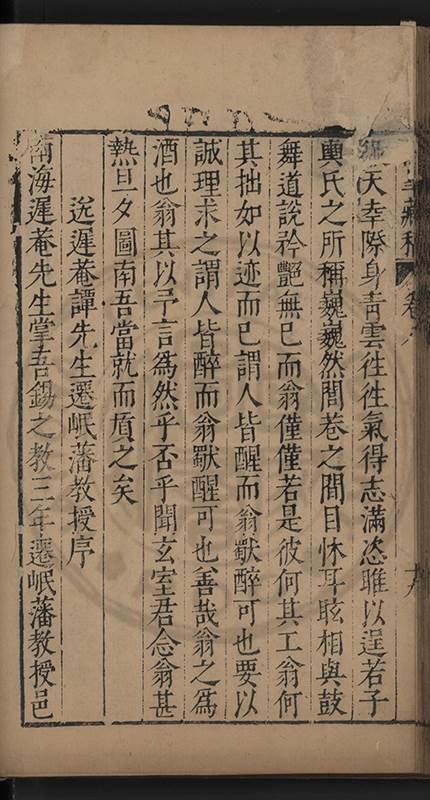 藏稿 卷六 十六
天幸際身青雲徃徃氣得志滿恣睢以逞若子
輿氏之所稱巍巍然閭巷之間目怵耳眩相與鼓
舞道說矜艷無已而翁僅僅若是彼何其工翁何
其拙如以迹而已謂人皆醒而翁獸醉可也要以
誠理求之謂人皆醉而翁獸醒可也善哉翁之為
酒也翁其以予言為然乎否乎聞玄室君念翁甚
熱旦夕圖南吾當就而質之矣
送遲菴譚先生遷岷藩教授序
南海遲菴先生掌吾錫之教三年遷岷藩教授邑